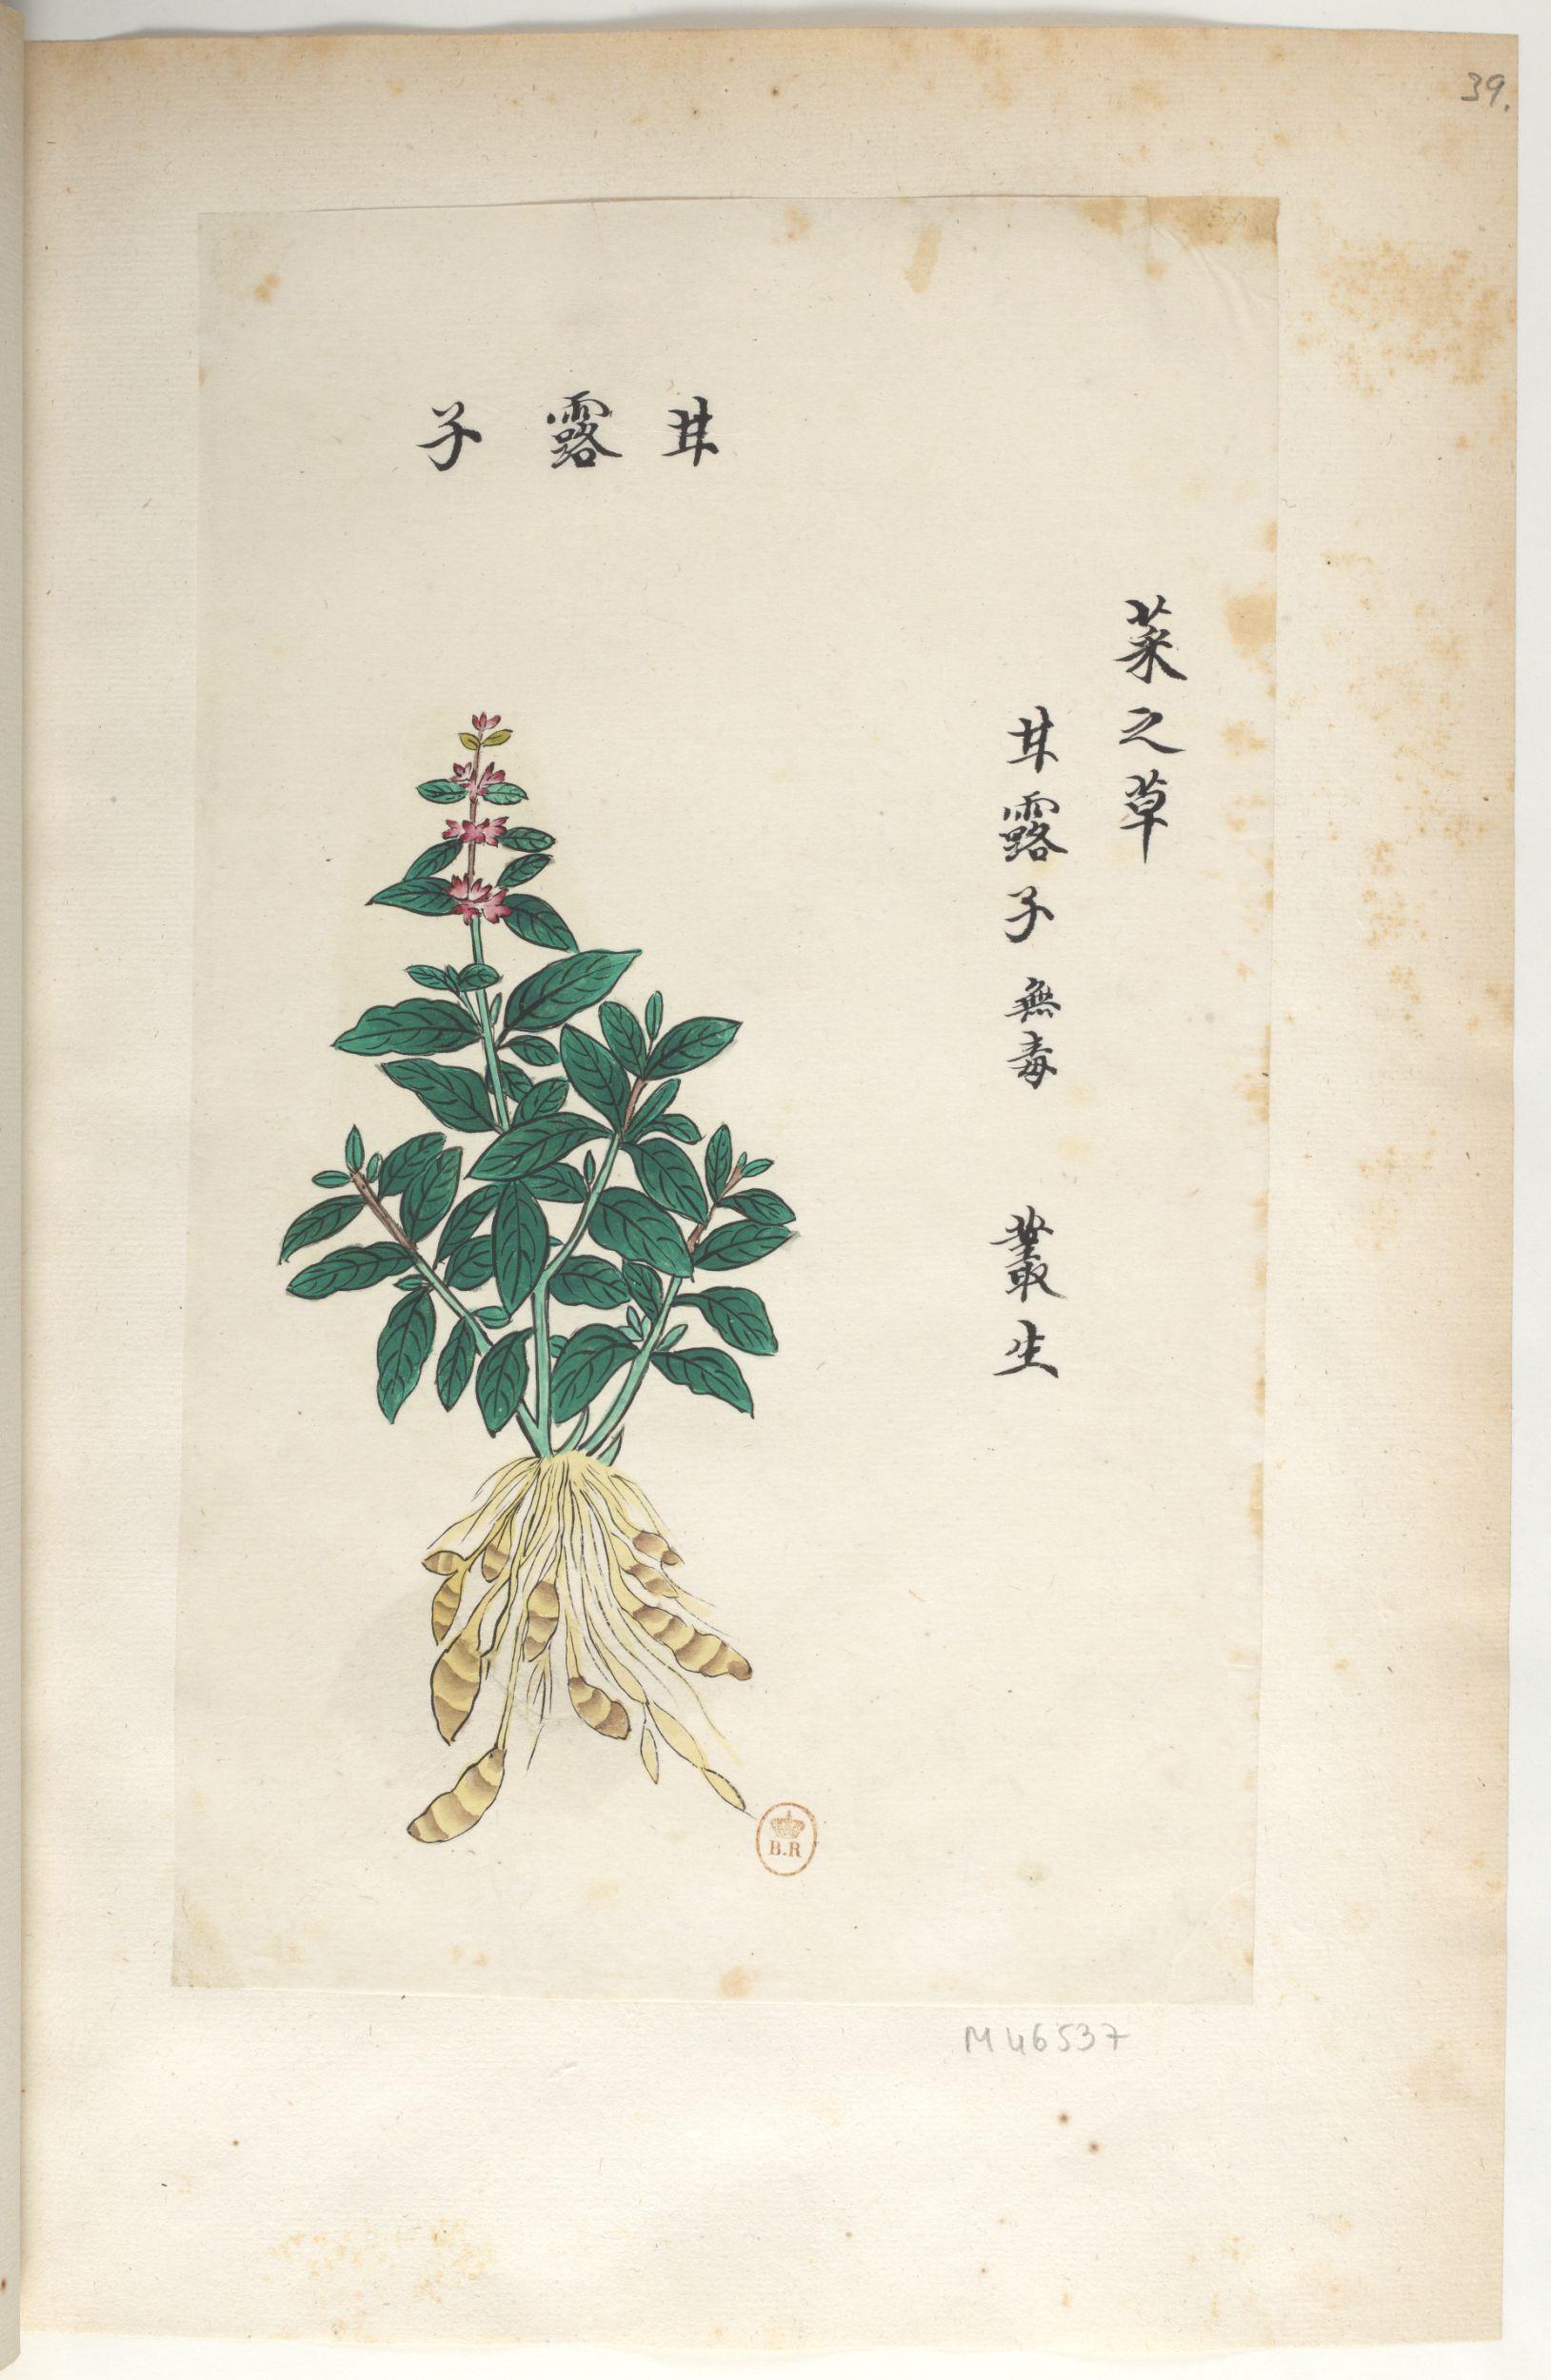 39.
甘露子
菜之草
甘露子 無毒 叢生
B.R
M 46537